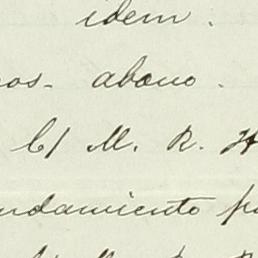 idem.
os- abono.
C/ M. R. H
ndamiento p